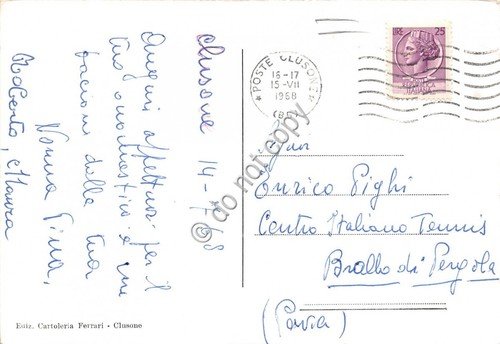 Clusone 14-7-68
Auguri affettuosi per il
tuo onomastico e un
bacioni dalla tua
Nonna Pina,
Roberto, Maura
POSTE CLUSONE
16-17
15-VII
1968
(BG)
LIRE 25
REPUBBLICA
ITALIANA
Enrico Pighi
Centro Italiano Tennis
Brallo di Pergola
(Pavia)
Ediz. Cartoleria Ferrari - Clusone
do not copy